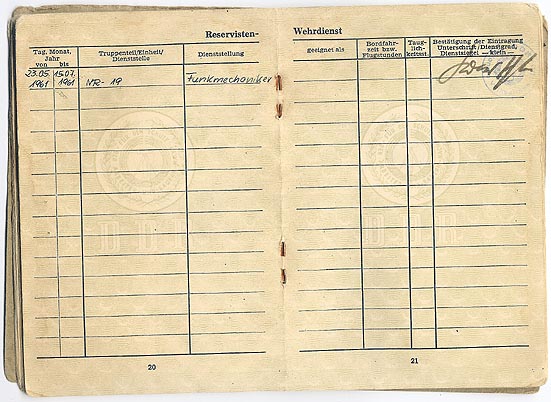 Reservisten-
Tag, Monat,
Jahr
von bis
Truppenteil/Einheit/
Dienststelle
Dienststellung
23.05. 15.07.
1961 1961
NR-19
Funkmechaniker
DDR
20
Wehrdienst
geeignet als
Bordfahr-
zeit bzw.
Flugstunden
Taug-
lich-
keitsst.
Bestätigung der Eintragung
Unterschrift/Dienstgrad,
Dienstsiegel — klein —
DDR
21